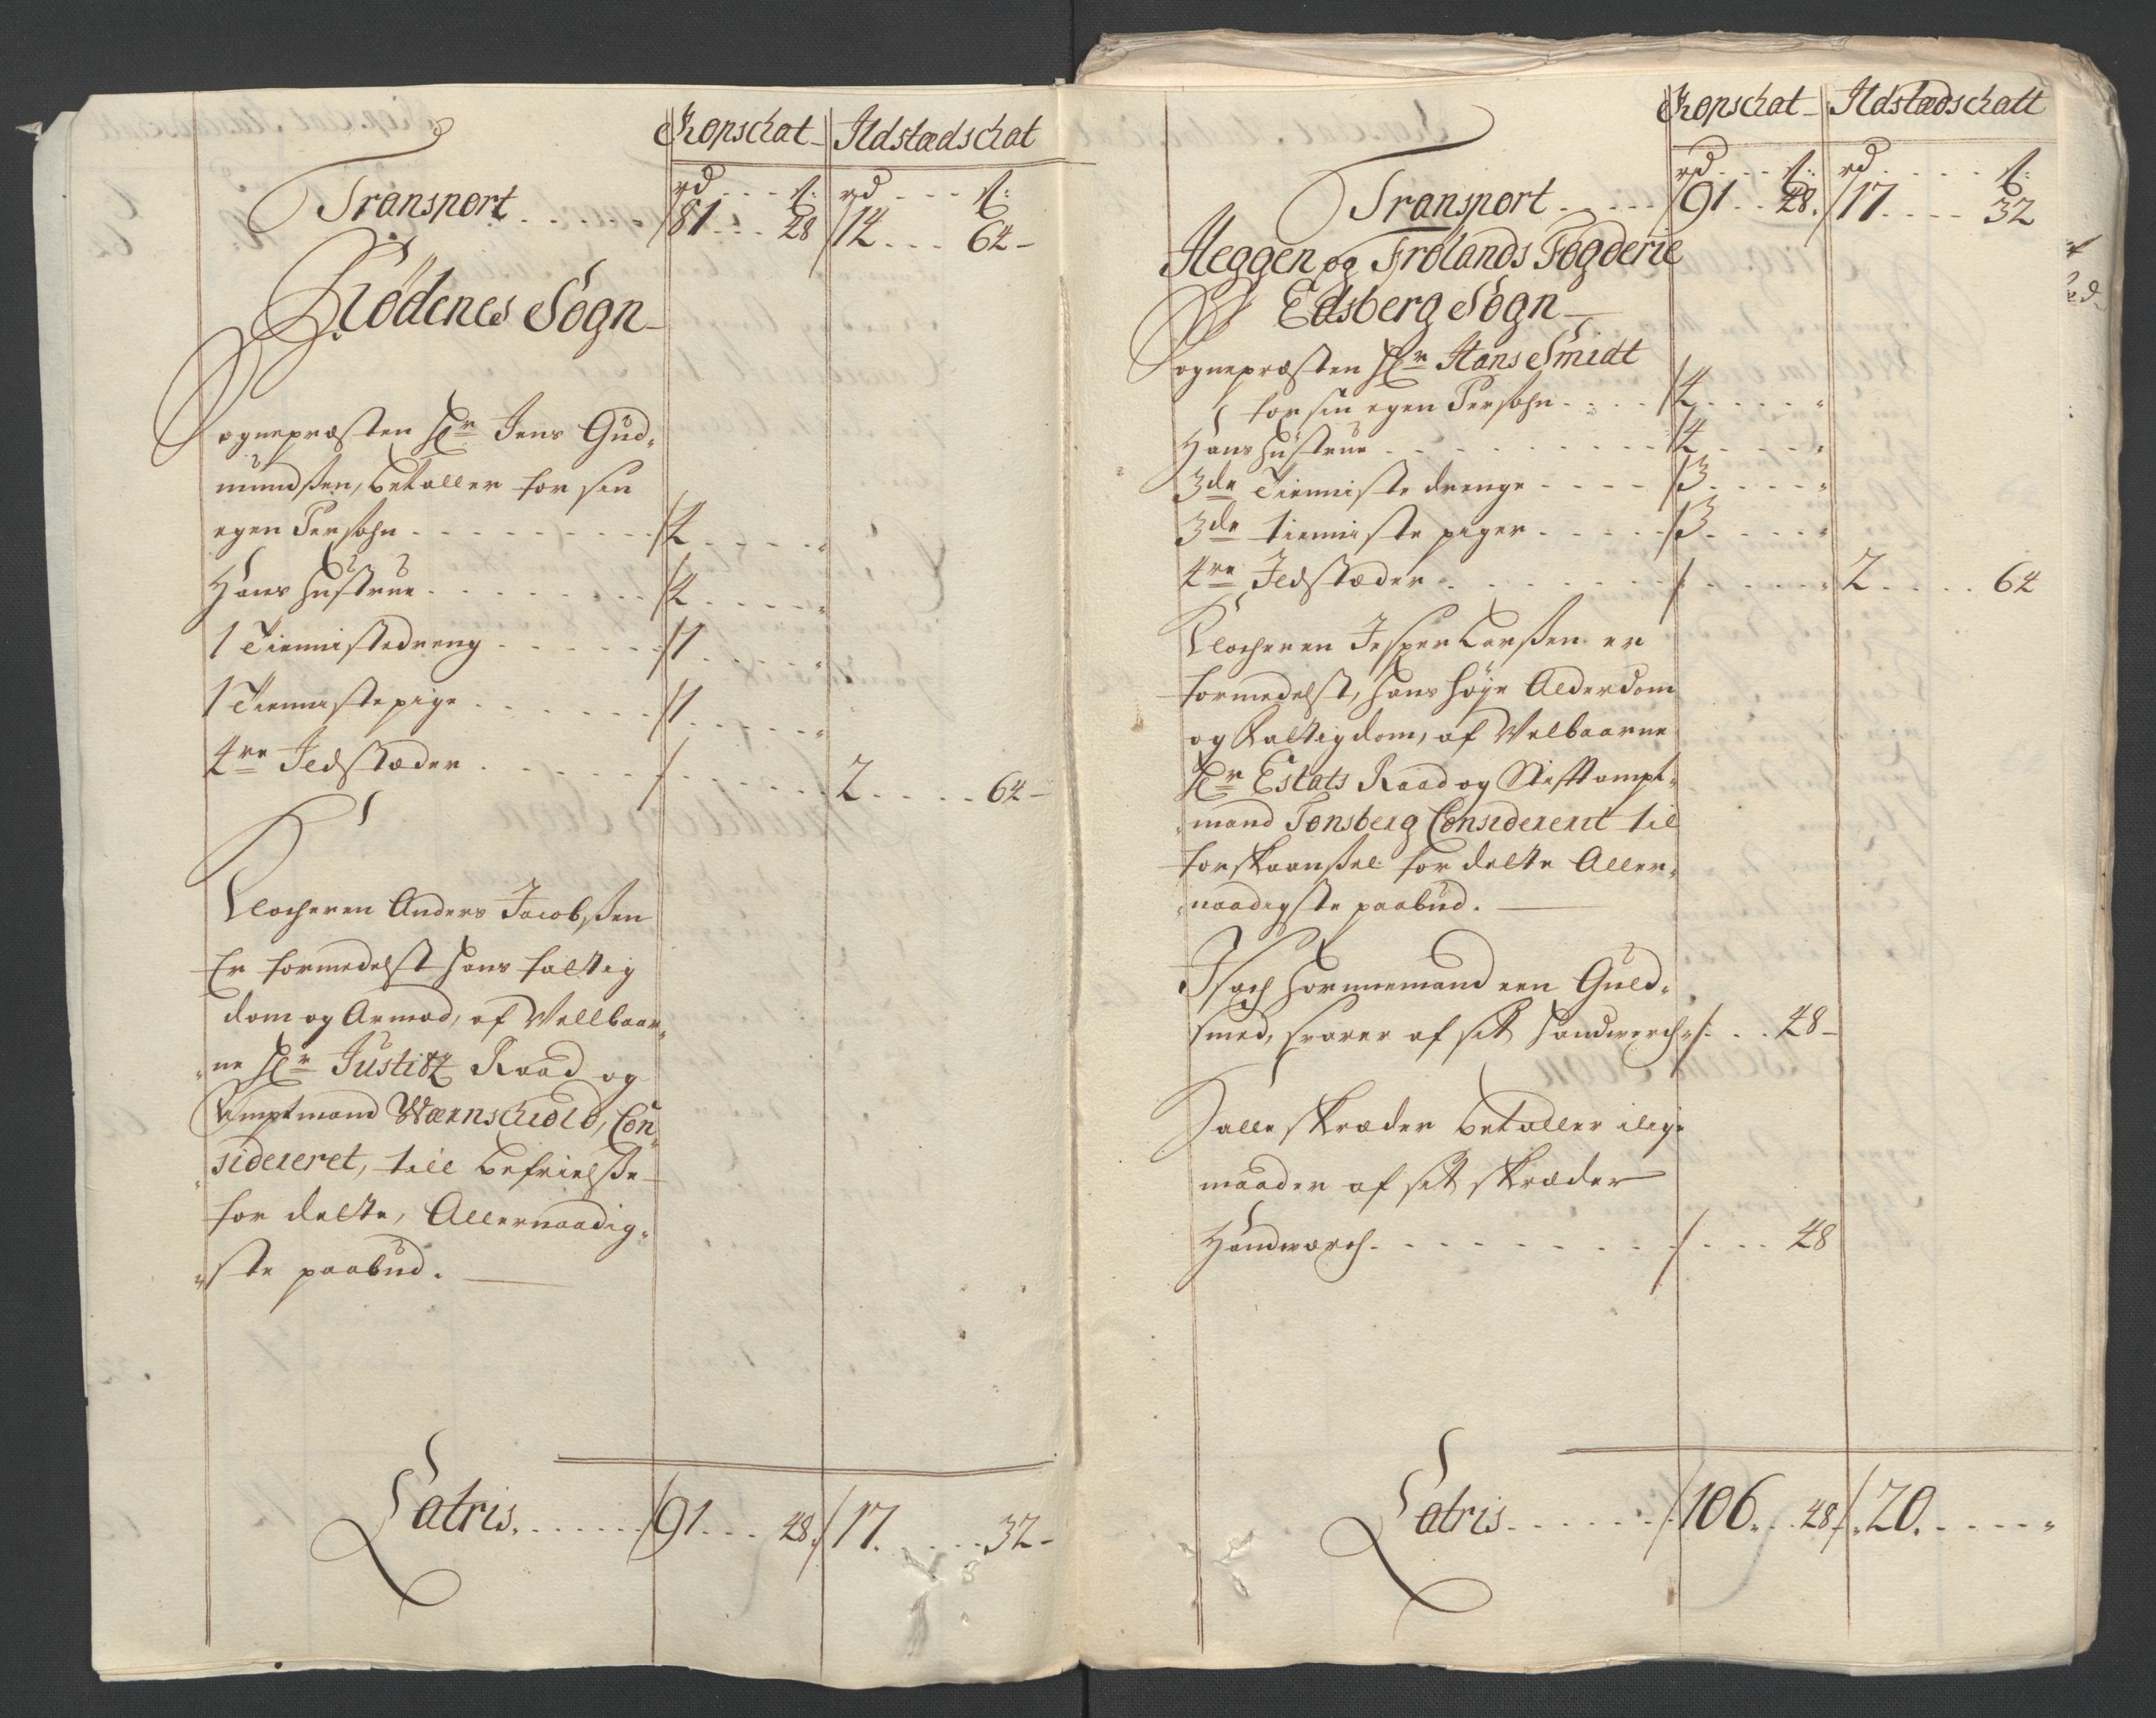 Kopschat Ildstædschat
rd ß: rd ß:
Transport 81 28 14 64
Rødenes Sogn
Sognepræsten Hr Jens Gud„
mundsen, betaller for sin
egen Persohn 4
Hans hustrue 4
1 Tiennistedreng 1
1 Tiennistepige 1
4re Ildstæder 2 64
Klocheren Anders Jacobsen
Er formedelst hans faltig
dom og Armod, af Wellbaar„
„ne Hr Justitz Raad og
Amptmand Wærnschiold, Con„
„sidereret, till befrielse
for dette, Allernaadig„
„ste paabud.
Latris 91 28 17 32
Kopschat Ildstædschatt
rd ß: rd ß:
Transport 91 28 17 32
Heggen og Frølands Fogderie
Edsberg Sogn
Sognepræsten Hr Hans Smidt
for sin egen Persohn 4
Hans hustrue 4
3de Tienniste drenge 3
3de tienniste piger 3
4re Ildstæder 2 64
Klocheren Jesper Larsen er
formedelst, hans høye Alderdom
og faltigdom, af Welbaarne
Hr Estats Raad og Stiftampt„
„mand Tonsberg Considerert til
forskaansel for dette Aller„
„naadigste paabud.
Isach Hornnemand een Guld„
smed, svarer af sit handwerch 48
Halle skræder betaller i lige
maader af sit skræder
Handwærch 48
Latris 106 48 20